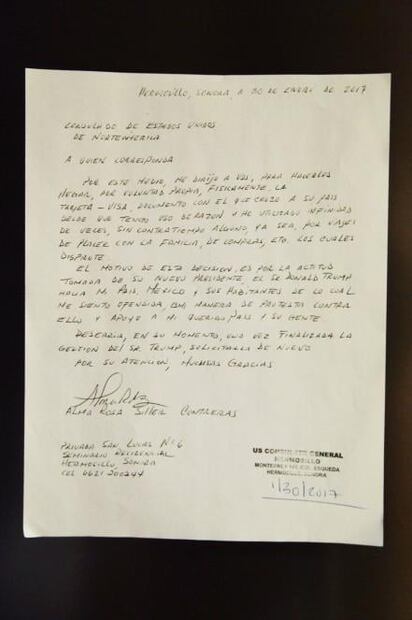 HERMOSILLO, SONORA, A 30 DE ENERO DE 2017
CONSULADO DE ESTADOS UNIDOS
DE NORTEAMERICA
A QUIEN CORRESPONDA
POR ESTE MEDIO, ME DIRIJO A UDS, PARA HACERLES
LLEGAR, POR VOLUNTAD PROPIA, FISICAMENTE, LA
TARJETA - VISA, DOCUMENTO CON EL QUE CRUZO A SU PAIS
DESDE QUE TENGO USO DE RAZON Y HE UTILIZADO INFINIDAD
DE VECES, SIN CONTRATIEMPO ALGUNO, YA SEA, POR VIAJES
DE PLACER CON LA FAMILIA, DE COMPRAS, ETC, LOS CUALES
DISFRUTE.
EL MOTIVO DE ESTA DECISION, ES POR LA ACTITUD
TOMADA DE SU NUEVO PRESIDENTE, EL SR DONALD TRUMP
HACIA MI PAIS, MEXICO, Y SUS HABITANTES DE LO CUAL
ME SIENTO OFENDIDA, EN MANERA DE PROTESTA CONTRA
ELLO Y APOYO A MI QUERIDO PAIS Y SU GENTE.
DESEARIA, EN SU MOMENTO, UNA VEZ FINALIZADA LA
GESTION DEL SR TRUMP, SOLICITARLA DE NUEVO
POR SU ATENCION, MUCHISAS GRACIAS
ALMA ROSA SILLER CONTRERAS
PRIVADA SAN LUCAS Nº 6
SEMINARIO RESIDENCIAL
HERMOSILLO SONORA
CEL 0621 200244
US CONSULATE GENERAL
HERMOSILLO
MONTERREY ESQUEDA
HERMOSILLO, SONORA
1/30/2017